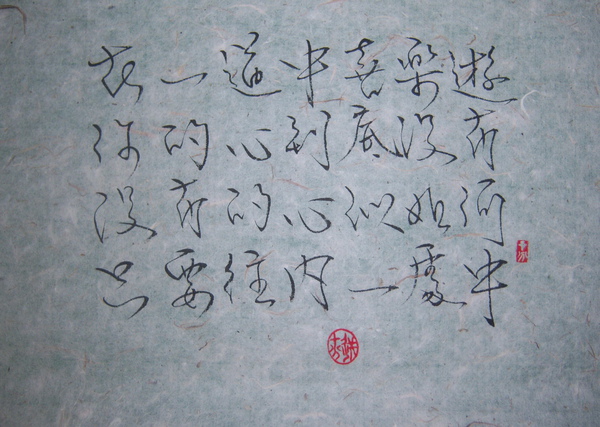 在一道中喜樂遊
你的心到底沒有
沒有的心似如何
只要往內一處中